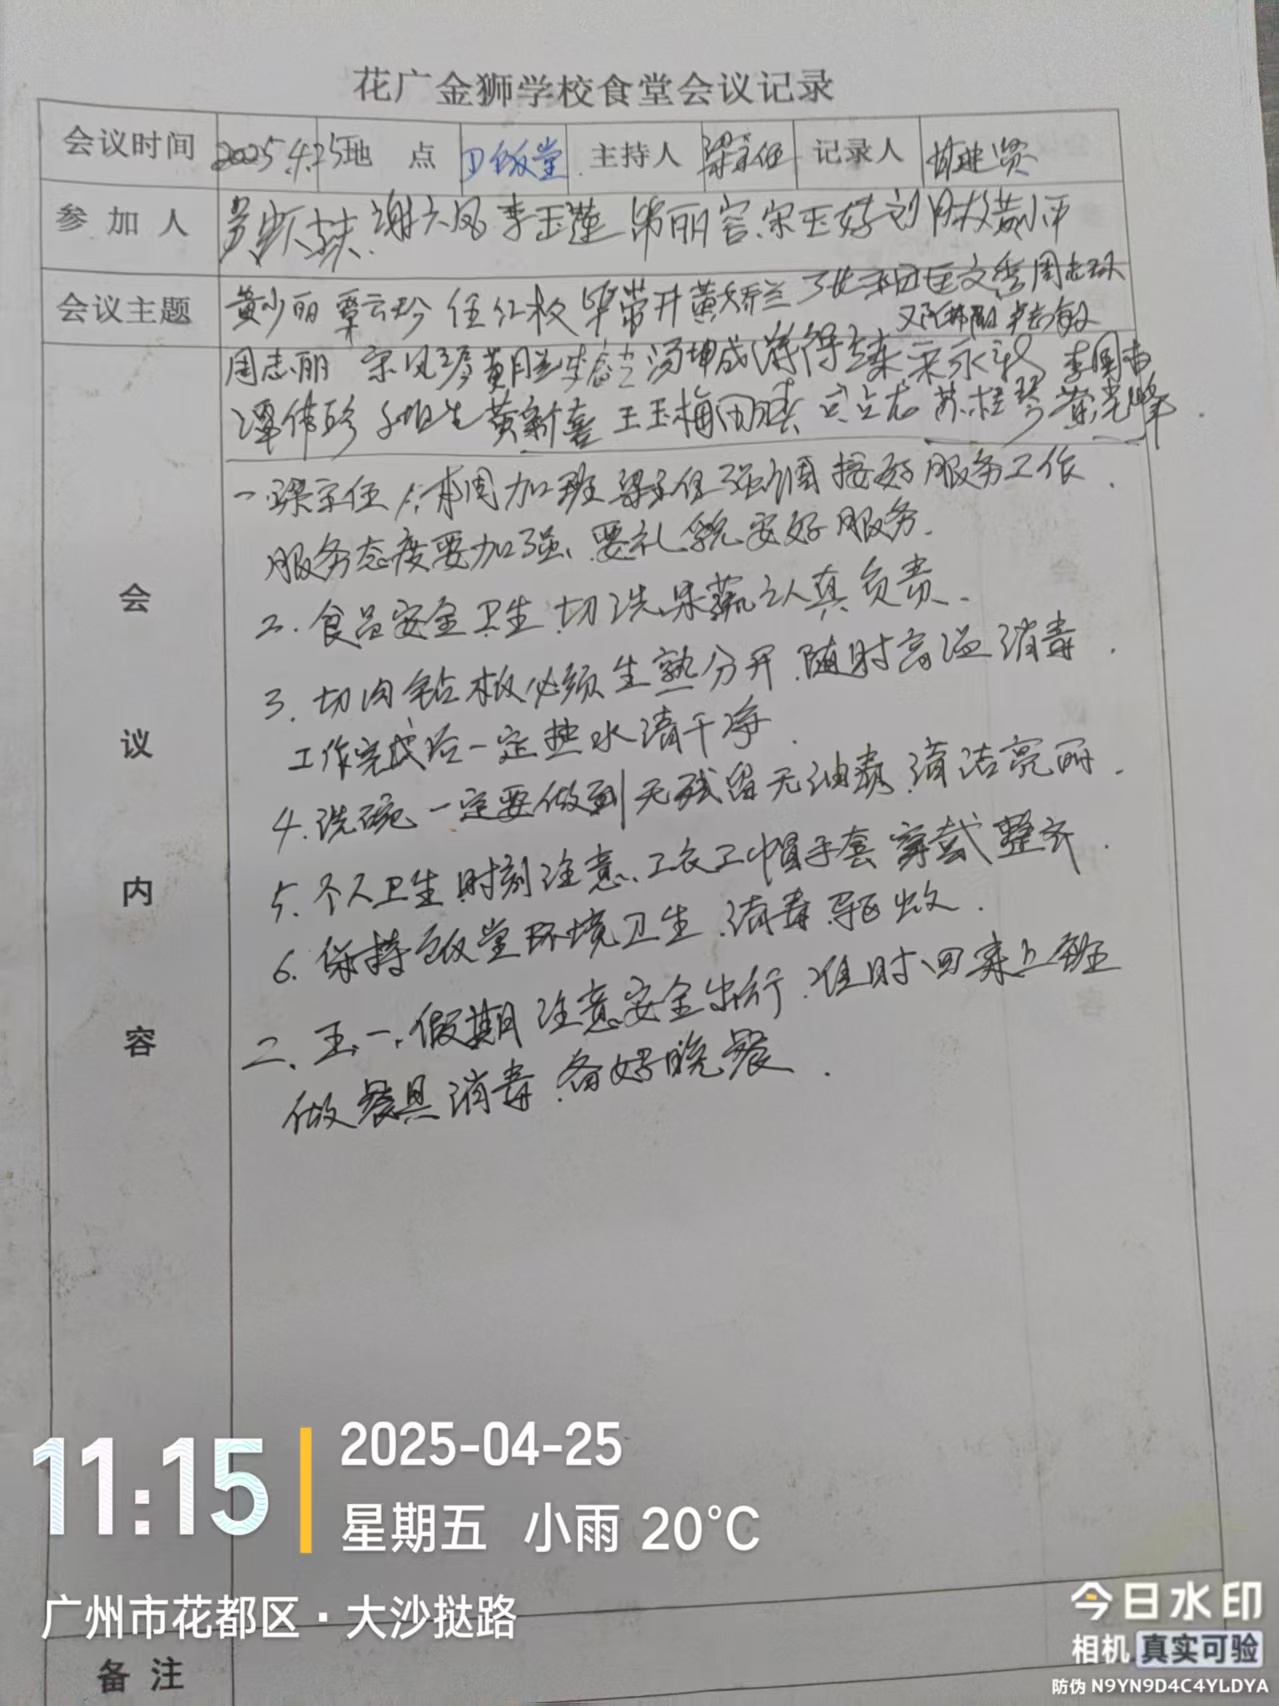 花广金狮学校食堂会议记录
会议时间 2025.4.25 地点 饭堂 主持人 梁主任 记录人
参加人 谢六凤 李玉莲 丽容 宋玉好 刘月枚 黄小平
会议主题 黄少丽 覃云珍 任红权 毕带井 黄娇兰 文香 周志琼
周志丽 宋凤琴 黄月兰 汤坤成 宋永秋
谭伟珍 黄新喜 王玉梅 苏桂琴
会议内容
一.梁主任:1.本周加班梁主任强调接好服务工作.
服务态度要加强、要礼貌安好服务.
2.食品安全卫生.切洗果蔬之认真负责.
3.切肉钻板必须生熟分开.随时高温消毒.
工作完成后一定热水清干净.
4.洗碗一定要做到无残留无油毒.清洁亮丽.
5.个人卫生时刻注意、工衣工帽手套穿戴整齐.
6.保持饭堂环境卫生.消毒驱蚊.
二、五.一.假期注意安全出行.准时回来上班
做餐具消毒.备好晚餐.
备注
11:15
2025-04-25
星期五 小雨 20°C
广州市花都区·大沙挞路
今日水印
相机 真实可验
防伪 N9YN9D4C4YLDYA